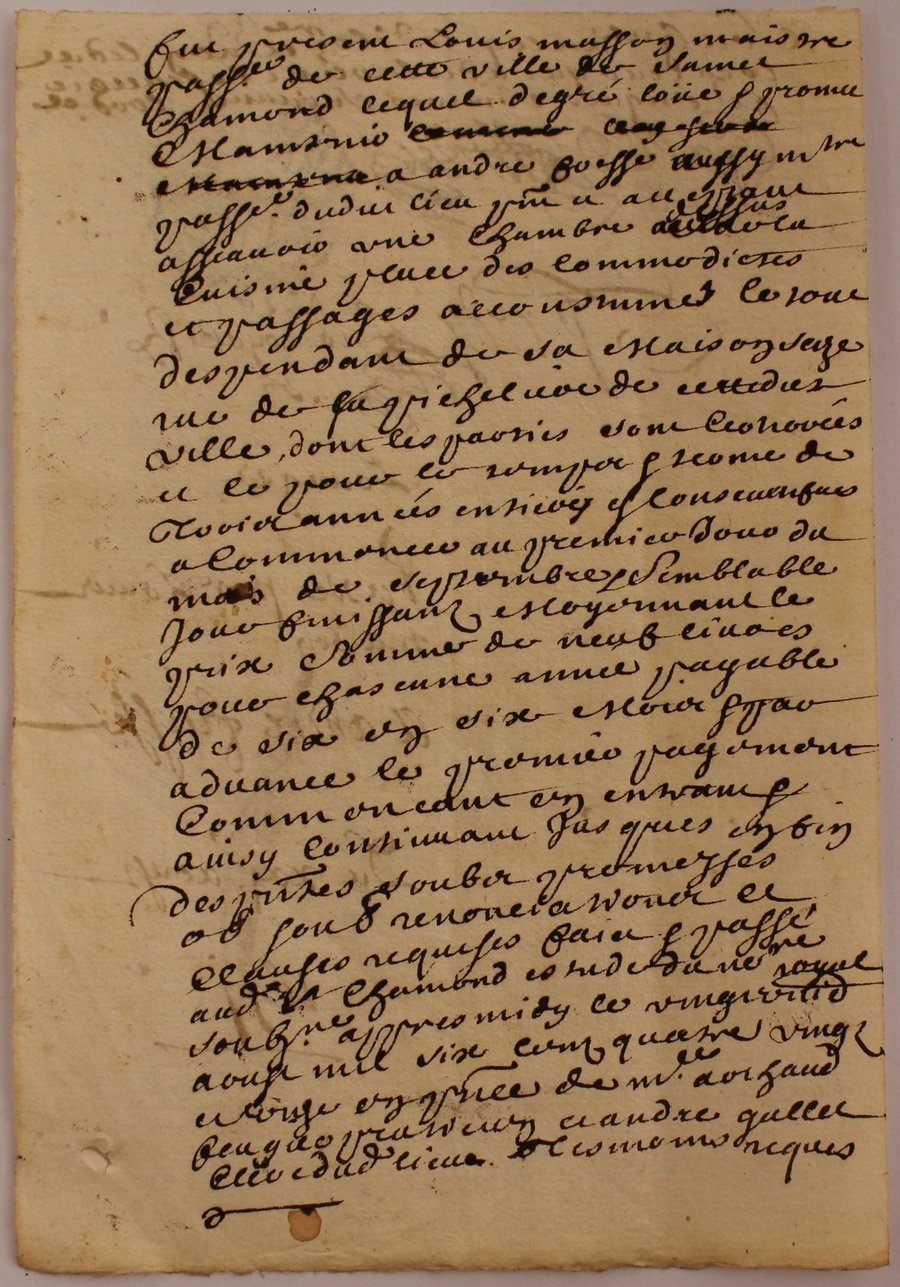 fut present Louis masson maistre
passr. de cette ville de Sainct
Chamond lequel degré loüe & promet
Maintenir
a andre fosse aussy mtre
passr. dudit lieu pnt et acceptant
assçavoir une Chambre dessus la
Cuisine place des Commodictes
et passages accoustumes le tout
despendant de sa Maison size
rue de la Richeliere de cettedite
ville, dont lesparties sont
et ce pour le temps & terme de
Troix années entieres & Consecutifves
a Commancer au premier Jour du
mois de Septembre & Semblable
Jour finissant Moyennant le
prix & Somme de neuf livres
pour chascune année payable
de six en six Mois & par
advance le premier payement
Commoncant en entrant &
ainsy Continuant Jusques en fin
des pntes soubz promesses
ob soub renonciations et
Clauses requises faict & passé
aud. St Chamond estude du nore royal
soubzne. appres midy le vingt
aoust mil six Cent quatre vingt
et onze en pnce de mr.
praticien et andre gallet
Clerc dud. lieu tesmoins requis